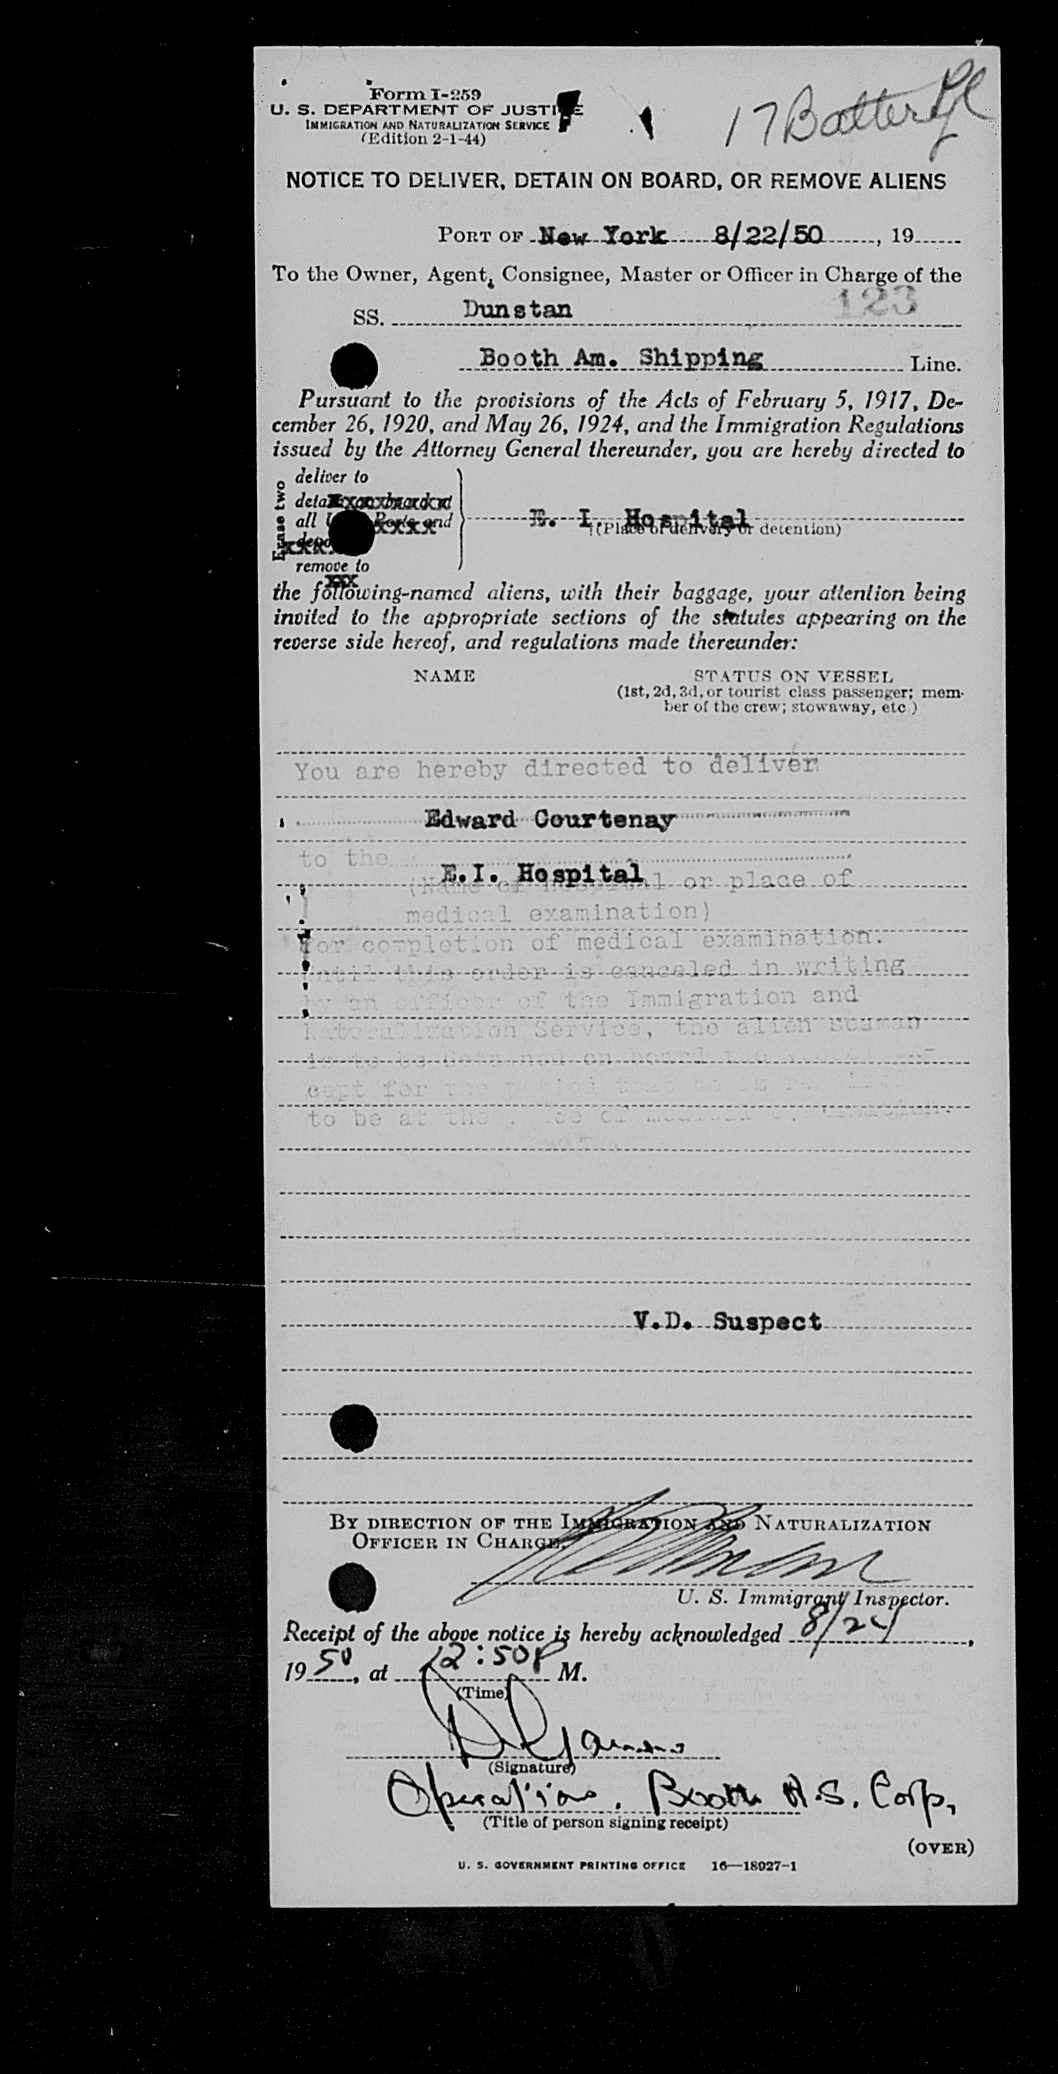 Form I-259
U. S. DEPARTMENT OF JUSTICE
IMMIGRATION AND NATURALIZATION SERVICE
(Edition 2-1-44)
17 Battery Pl
NOTICE TO DELIVER, DETAIN ON BOARD, OR REMOVE ALIENS
PORT OF New York 8/22/50, 19
To the Owner, Agent, Consignee, Master or Officer in Charge of the
123
SS. Dunstan
Booth Am. Shipping Line.
Pursuant to the provisions of the Acts of February 5, 1917, De-
cember 26, 1920, and May 26, 1924, and the Immigration Regulations
issued by the Attorney General thereunder, you are hereby directed to
Erase two
deliver to
detain on board at
all Ports and
remove to
E. I. Hospital
(Place of delivery or detention)
the following-named aliens, with their baggage, your attention being
invited to the appropriate sections of the statutes appearing on the
reverse side hereof, and regulations made thereunder:
NAME
STATUS ON VESSEL
(1st, 2d, 3d, or tourist class passenger; mem-
ber of the crew; stowaway, etc.)
You are hereby directed to deliver
Edward Courtenay
to the
E.I. Hospital
(Name of hospital or place of
medical examination)
for completion of medical examination.
Until this order is canceled in writing
by an officer of the Immigration and
Naturalization Service, the alien seaman
is to be detained on board the
cept for the
to be at the of
V.D. Suspect
BY DIRECTION OF THE IMMIGRATION AND NATURALIZATION
OFFICER IN CHARGE.
U. S. Immigrant Inspector.
Receipt of the above notice is hereby acknowledged 8/24,
1950, at 12:50P M.
(Time)
(Signature)
Operations, Booth A.S. Corp,
(Title of person signing receipt)
(OVER)
U. S. GOVERNMENT PRINTING OFFICE 16—18927-1